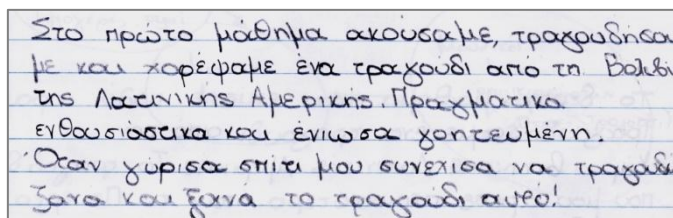 Στο πρώτο μάθημα ακούσαμε, τραγουδήσα
με και χορέψαμε ένα τραγούδι από τη Βολιβί
της Λατινικής Αμερικής. Πραγματικα
ενθουσιάστικα και ένιωσα γοητευμένη.
Όταν γύρισα σπίτι μου συνέχισα να τραγουδώ
ξανα και ξανα το τραγούδι αυτό!